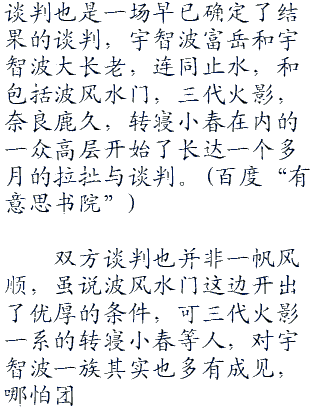 谈判也是一场早已确定了结
果的谈判，宇智波富岳和宇
智波大长老，连同止水，和
包括波风水门，三代火影，
奈良鹿久，转寝小春在内的
一众高层开始了长达一个多
月的拉扯与谈判。（百度“有
意思书院”）
双方谈判也并非一帆风
顺，虽说波风水门这边开出
了优厚的条件，可三代火影
一系的转寝小春等人，对宇
智波一族其实也多有成见，
哪怕团